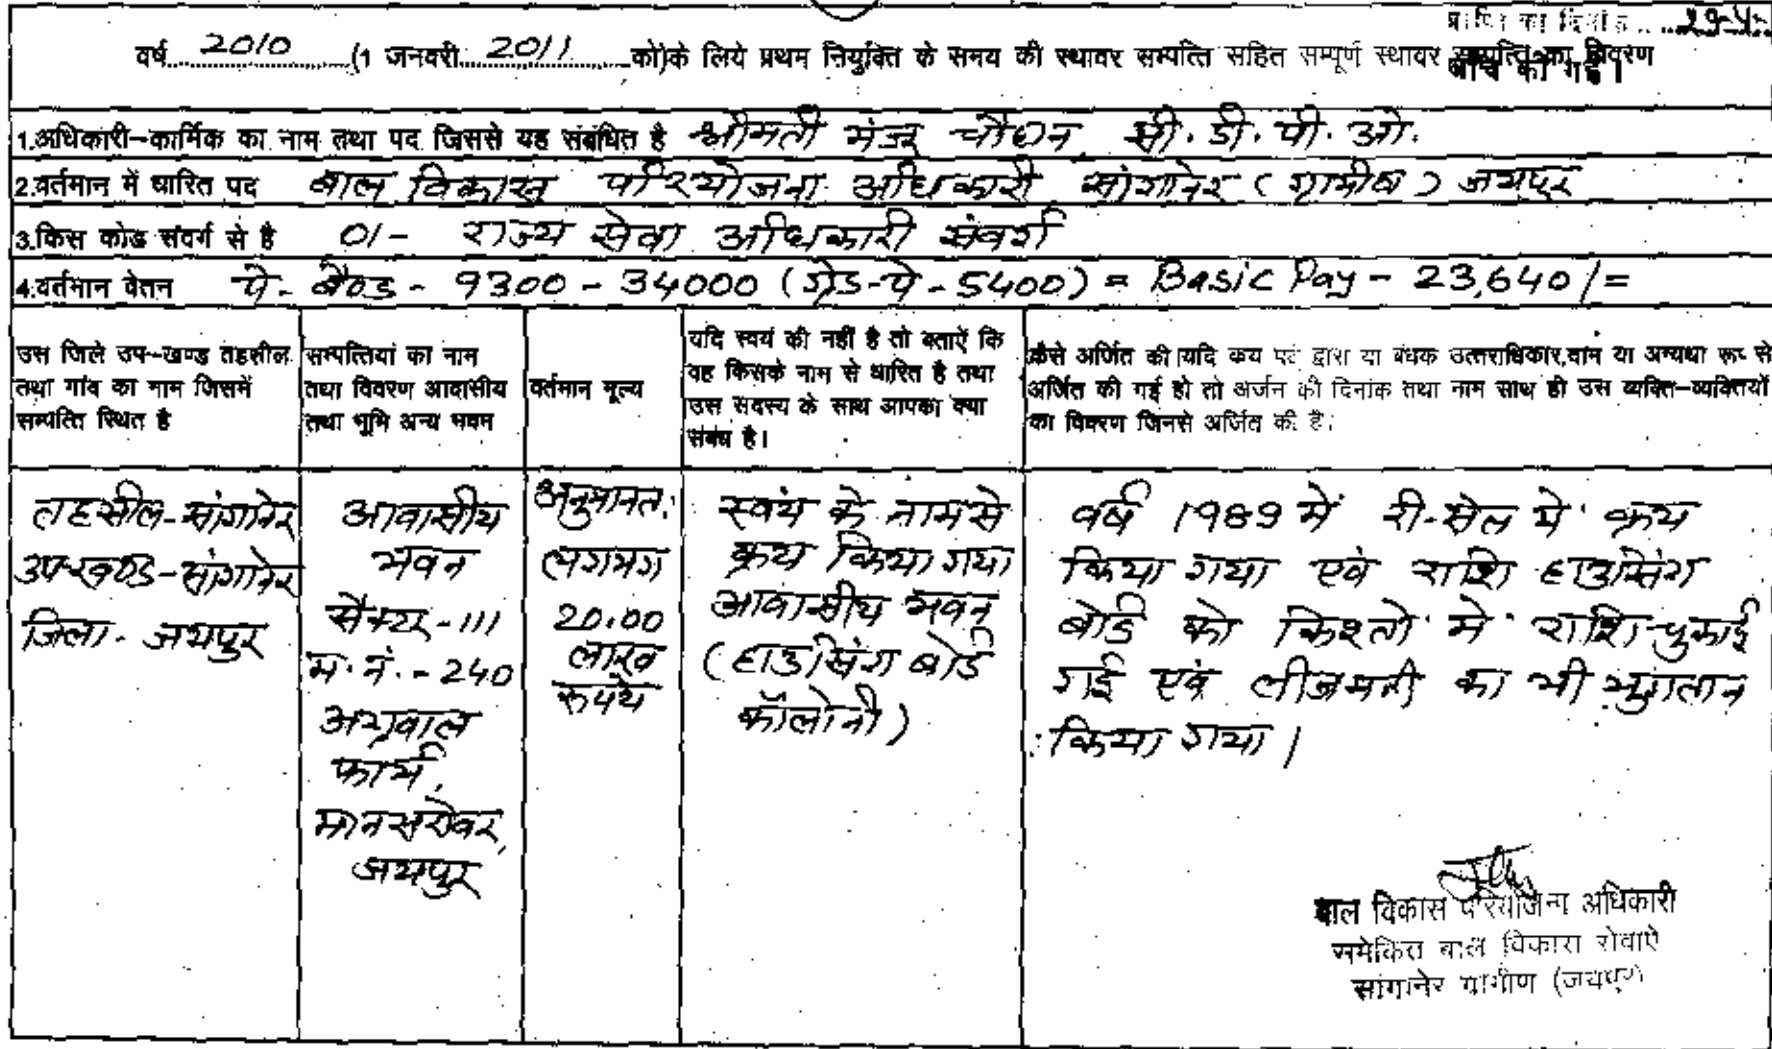 प्राप्ति का दिनांक
वर्ष 2010 (1 जनवरी 2011 को)के लिये प्रथम नियुक्ति के समय की स्थावर सम्पत्ति सहित सम्पूर्ण स्थावर सम्पत्ति का विवरण
जांच की गई।
1.अधिकारी-कार्मिक का नाम तथा पद जिससे यह संबंधित है श्रीमती मंजू सी.डी.पी.ओ.
2.वर्तमान में धारित पद बाल विकास परियोजना अधिकारी सांगानेर (ग्रामीण) जयपुर
3.किस कोड संवर्ग से है 01- राज्य सेवा अधिकारी संवर्ग
4.वर्तमान वेतन पे-बैण्ड - 9300 - 34000 (ग्रेड-पे-5400) = Basic Pay - 23,640/=
उस जिले उप-खण्ड तहसील
तथा गांव का नाम जिसमें
सम्पत्ति स्थित है
सम्पत्तियां का नाम
तथा विवरण आवासीय
तथा भूमि अन्य भवन
वर्तमान मूल्य
यदि स्वयं की नहीं है तो बताऐं कि
वह किसके नाम से धारित है तथा
उस सदस्य के साथ आपका क्या
संबंध है।
कैसे अर्जित की यदि क्रय पट्टे द्वारा या बंधक उत्तराधिकार,दान या अन्यथा रूप से
अर्जित की गई हो तो अर्जन की दिनांक तथा नाम साथ ही उस व्यक्ति-व्यक्तियों
का विवरण जिनसे अर्जित की है।
तहसील-सांगानेर
उपखण्ड-सांगानेर
जिला- जयपुर
आवासीय
भवन
सैक्टर-111
म.नं.-240
अग्रवाल
फार्म,
मानसरोवर,
जयपुर
अनुमानत:
लगभग
20.00
लाख
रुपये
स्वंय के नाम से
क्रय किया गया
आवासीय भवन
(हाउसिंग बोर्ड
कॉलोनी)
वर्ष 1989 में री-सेल में क्रय
किया गया एवं राशि हाउसिंग
बोर्ड को किश्तो में राशि चुकाई
गई एवं लीजमनी का भी भुगतान
किया गया।
बाल विकास परियोजना अधिकारी
समेकित बाल विकास सेवाऐं
सांगानेर ग्रामीण (जयपुर)